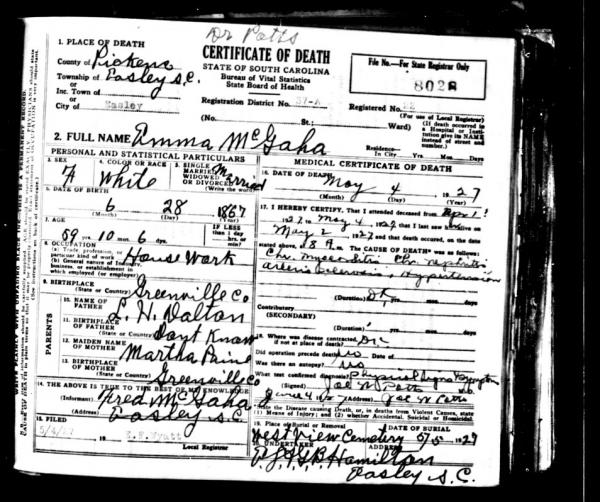 Dr Potts
1. PLACE OF DEATH
County of Pickens
Township of Easley S.C.
or
Inc. Town of
or
City of Easley
CERTIFICATE OF DEATH
STATE OF SOUTH CAROLINA
Bureau of Vital Statistics
State Board of Health
Registration District No. 37-A
(No. St.; Ward)
File No.—For State Registrar Only
8028
Registered No. 22
(For use of Local Registrar)
(If death occurred in
a Hospital or Insti-
tution give its NAME
instead of street and
number.)
2. FULL NAME Emma McGaha
Residence—
In City Yrs. Mos. Days
PERSONAL AND STATISTICAL PARTICULARS
3. SEX
F
4. COLOR OR RACE
White
5. SINGLE
MARRIED
WIDOWED
OR DIVORCED
(Write the word)
Married
6. DATE OF BIRTH
6 28 1867
(Month) (Day) (Year)
7. AGE
59 yrs. 10 mos. 6 dys.
IF LESS
than 1 day
hrs. or
min?
8. OCCUPATION
(a) Trade, profession, or
particular kind of work House Work
(b) General nature of industry,
business, or establishment in
which employed (or employer)
9. BIRTHPLACE
(State or Country) Greenville Co
PARENTS
10. NAME OF
FATHER L. H. Dalton
11. BIRTHPLACE
OF FATHER
(State or Country) Dont Know
12. MAIDEN NAME
OF MOTHER Martha
13. BIRTHPLACE
OF MOTHER
(State or Country) Greenville Co
14. THE ABOVE IS TRUE TO THE BEST OF MY KNOWLEDGE
(Informant) Fred McGaha
(Address) Easley S.C.
15. FILED
Local Registrar
MEDICAL CERTIFICATE OF DEATH
16. DATE OF DEATH
May 4 1927
(Month) (Day) (Year)
17. I HEREBY CERTIFY, That I attended deceased from
1927, to May 4, 1927, that I last saw her alive on
May 2 1927 and that death occurred, on the date
stated above, at 8 A.m. The CAUSE OF DEATH* was as follows:
Chr. Myocarditis Chr nephritis
arterio Sclerosis, Hypertension
(Duration) yrs. mos. days
Contributory
(SECONDARY)
(Duration) yrs. mos. days
18. Where was disease contracted
if not at place of death?
Did operation precede death? no Date of
Was there an autopsy? no
What test confirmed diagnosis? Physical Signs Symptoms
(Signed) M. D.
(Address)
*State the Disease Causing Death, or, in deaths from Violent Causes, state
(1) Means of Injury; and (2) whether Accidental, Suicidal or Homicidal.
19. Place of Burial or Removal
West View Cemetery
DATE OF BURIAL
5/5 1927
20. UNDERTAKER
Hamilton
ADDRESS
Easley S.C.